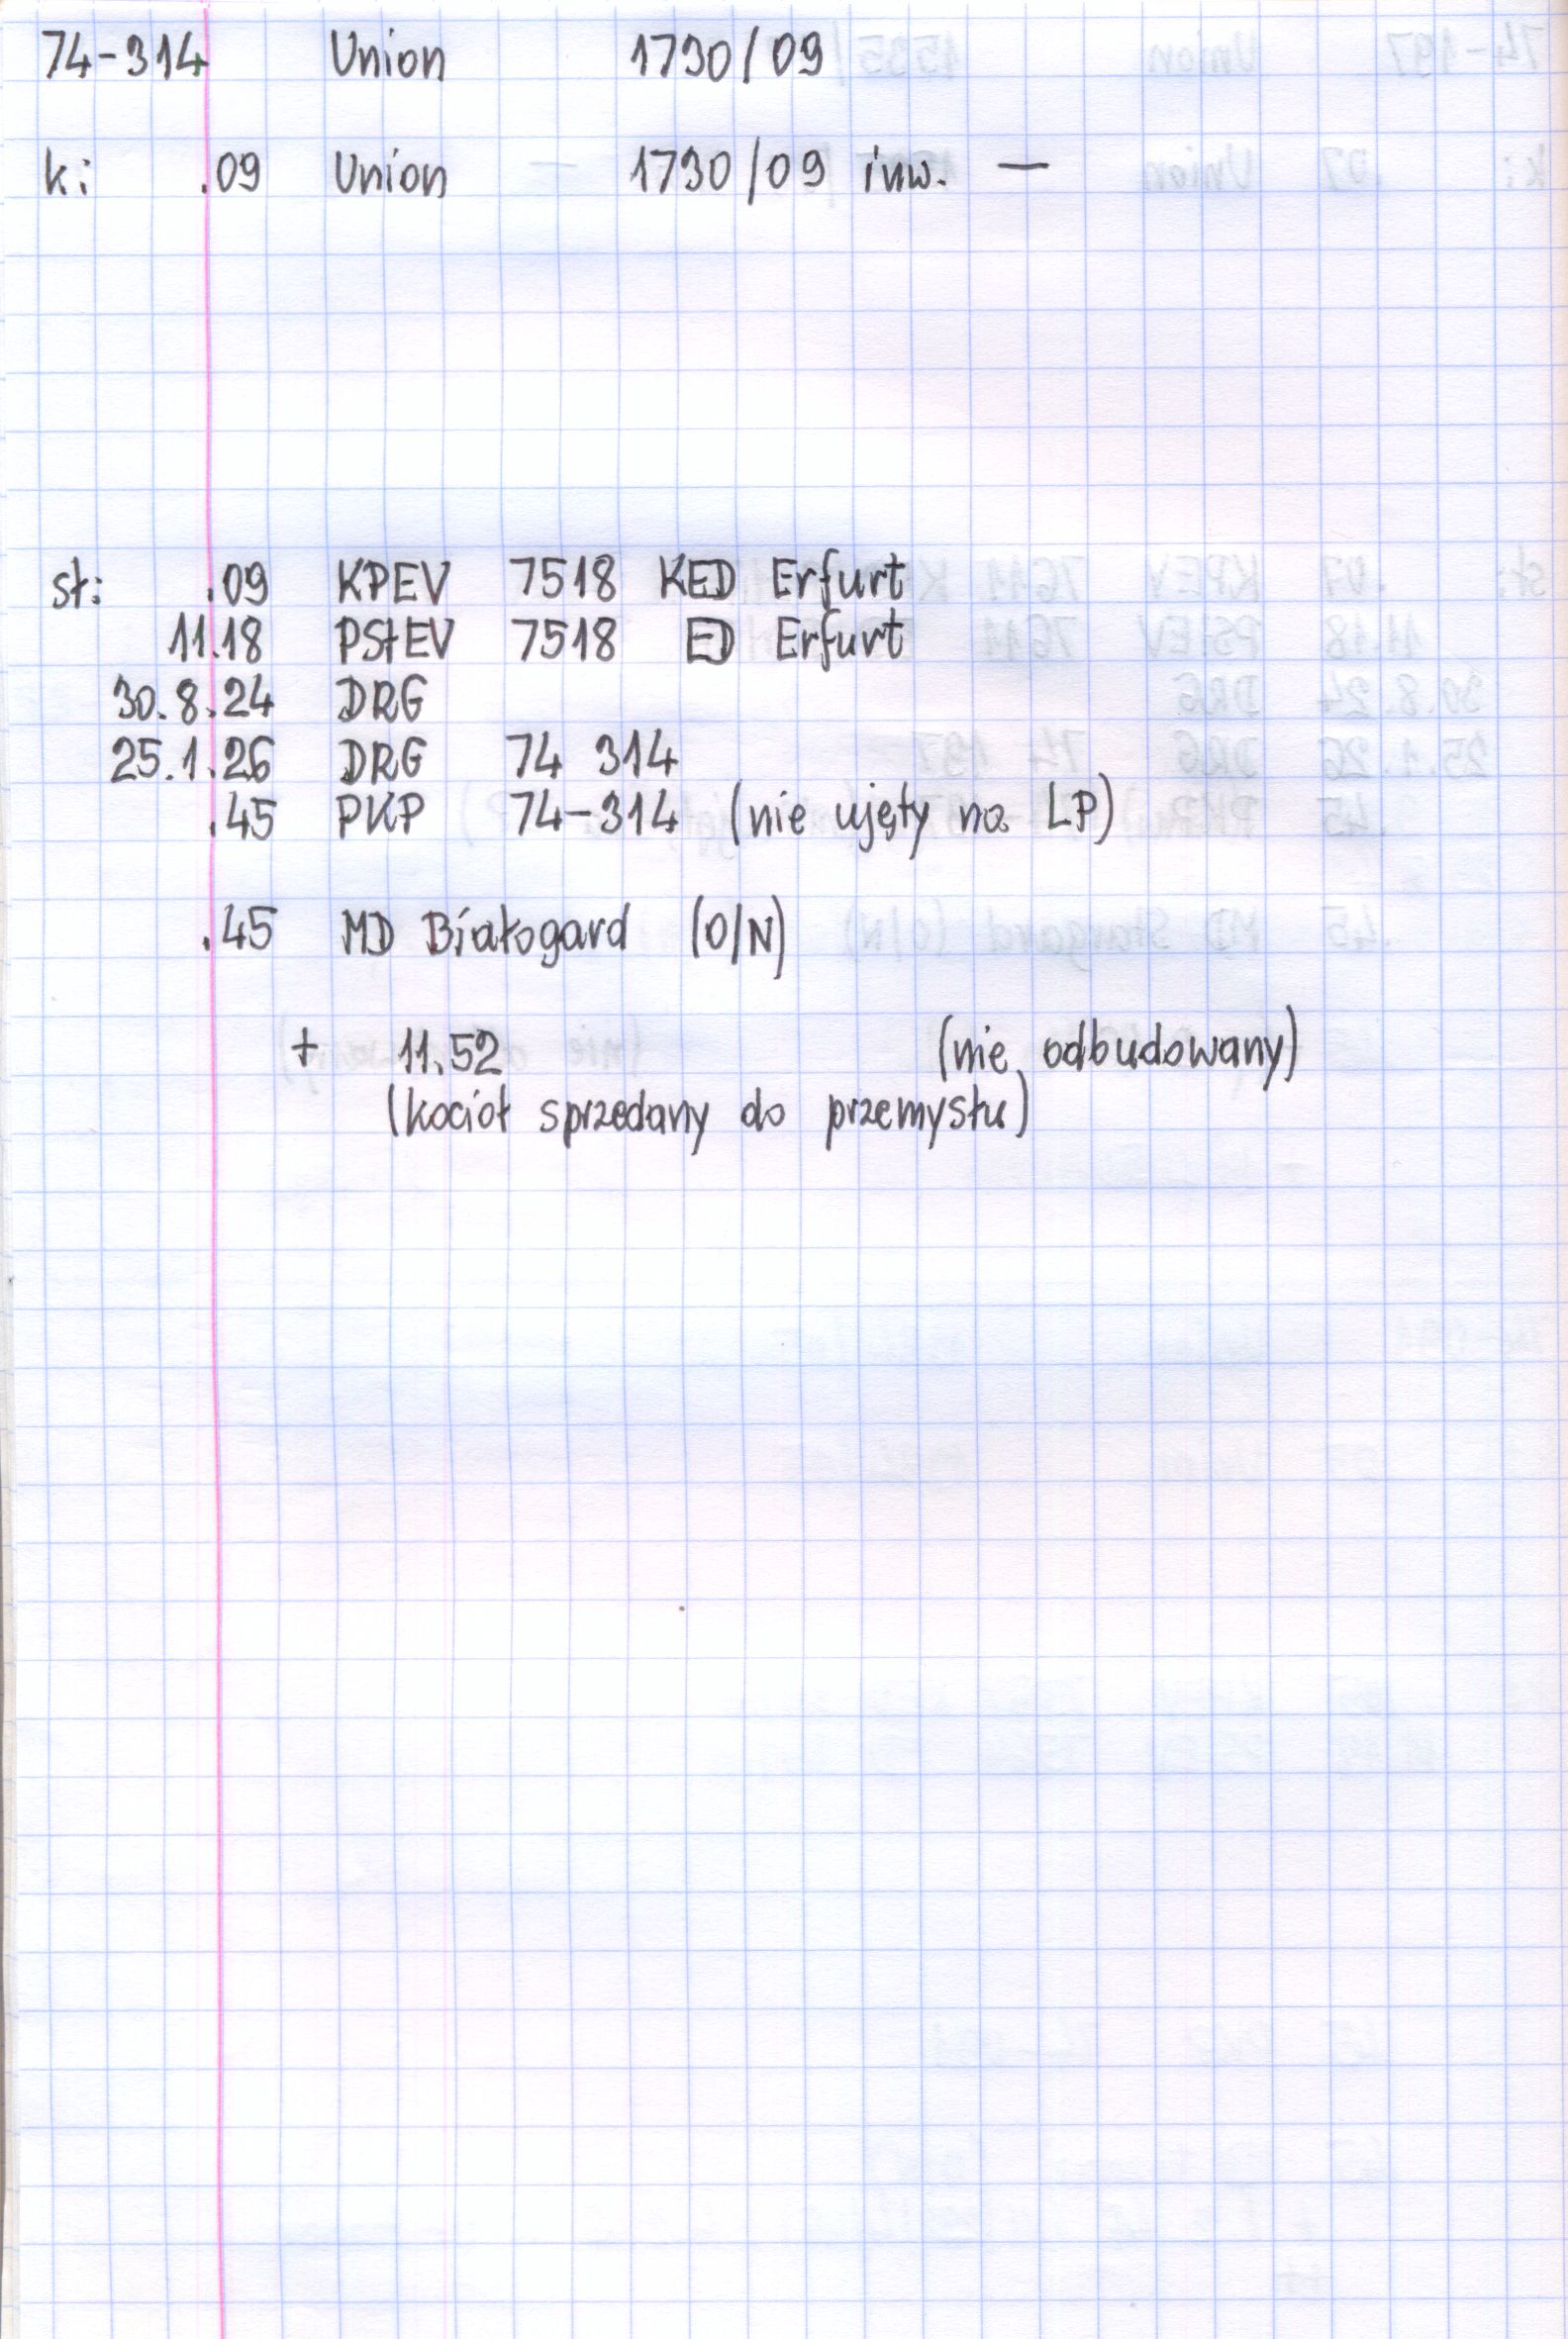 74-314 Union 1730/09
k: .09 Union 1730/09 inw. —
st: .09 KPEV 7518 KED Erfurt
11.18 PStEV 7518 ED Erfurt
30.8.24 DRG
25.1.26 DRG 74 314
.45 PKP 74-314 (nie ujęty na LP)
.45 MD Białogard (O/N)
+ 11.52 (nie odbudowany)
(kocioł sprzedany do przemysłu)